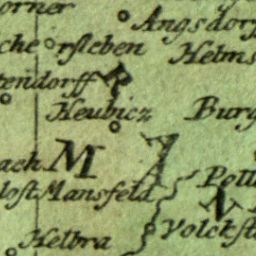 orner
Angsdorf
che rsleben
Helms
tendorff
R
Heubicz
Burg
M A N
ach
lost Mansfeld
Poll
Volckst
Helbra